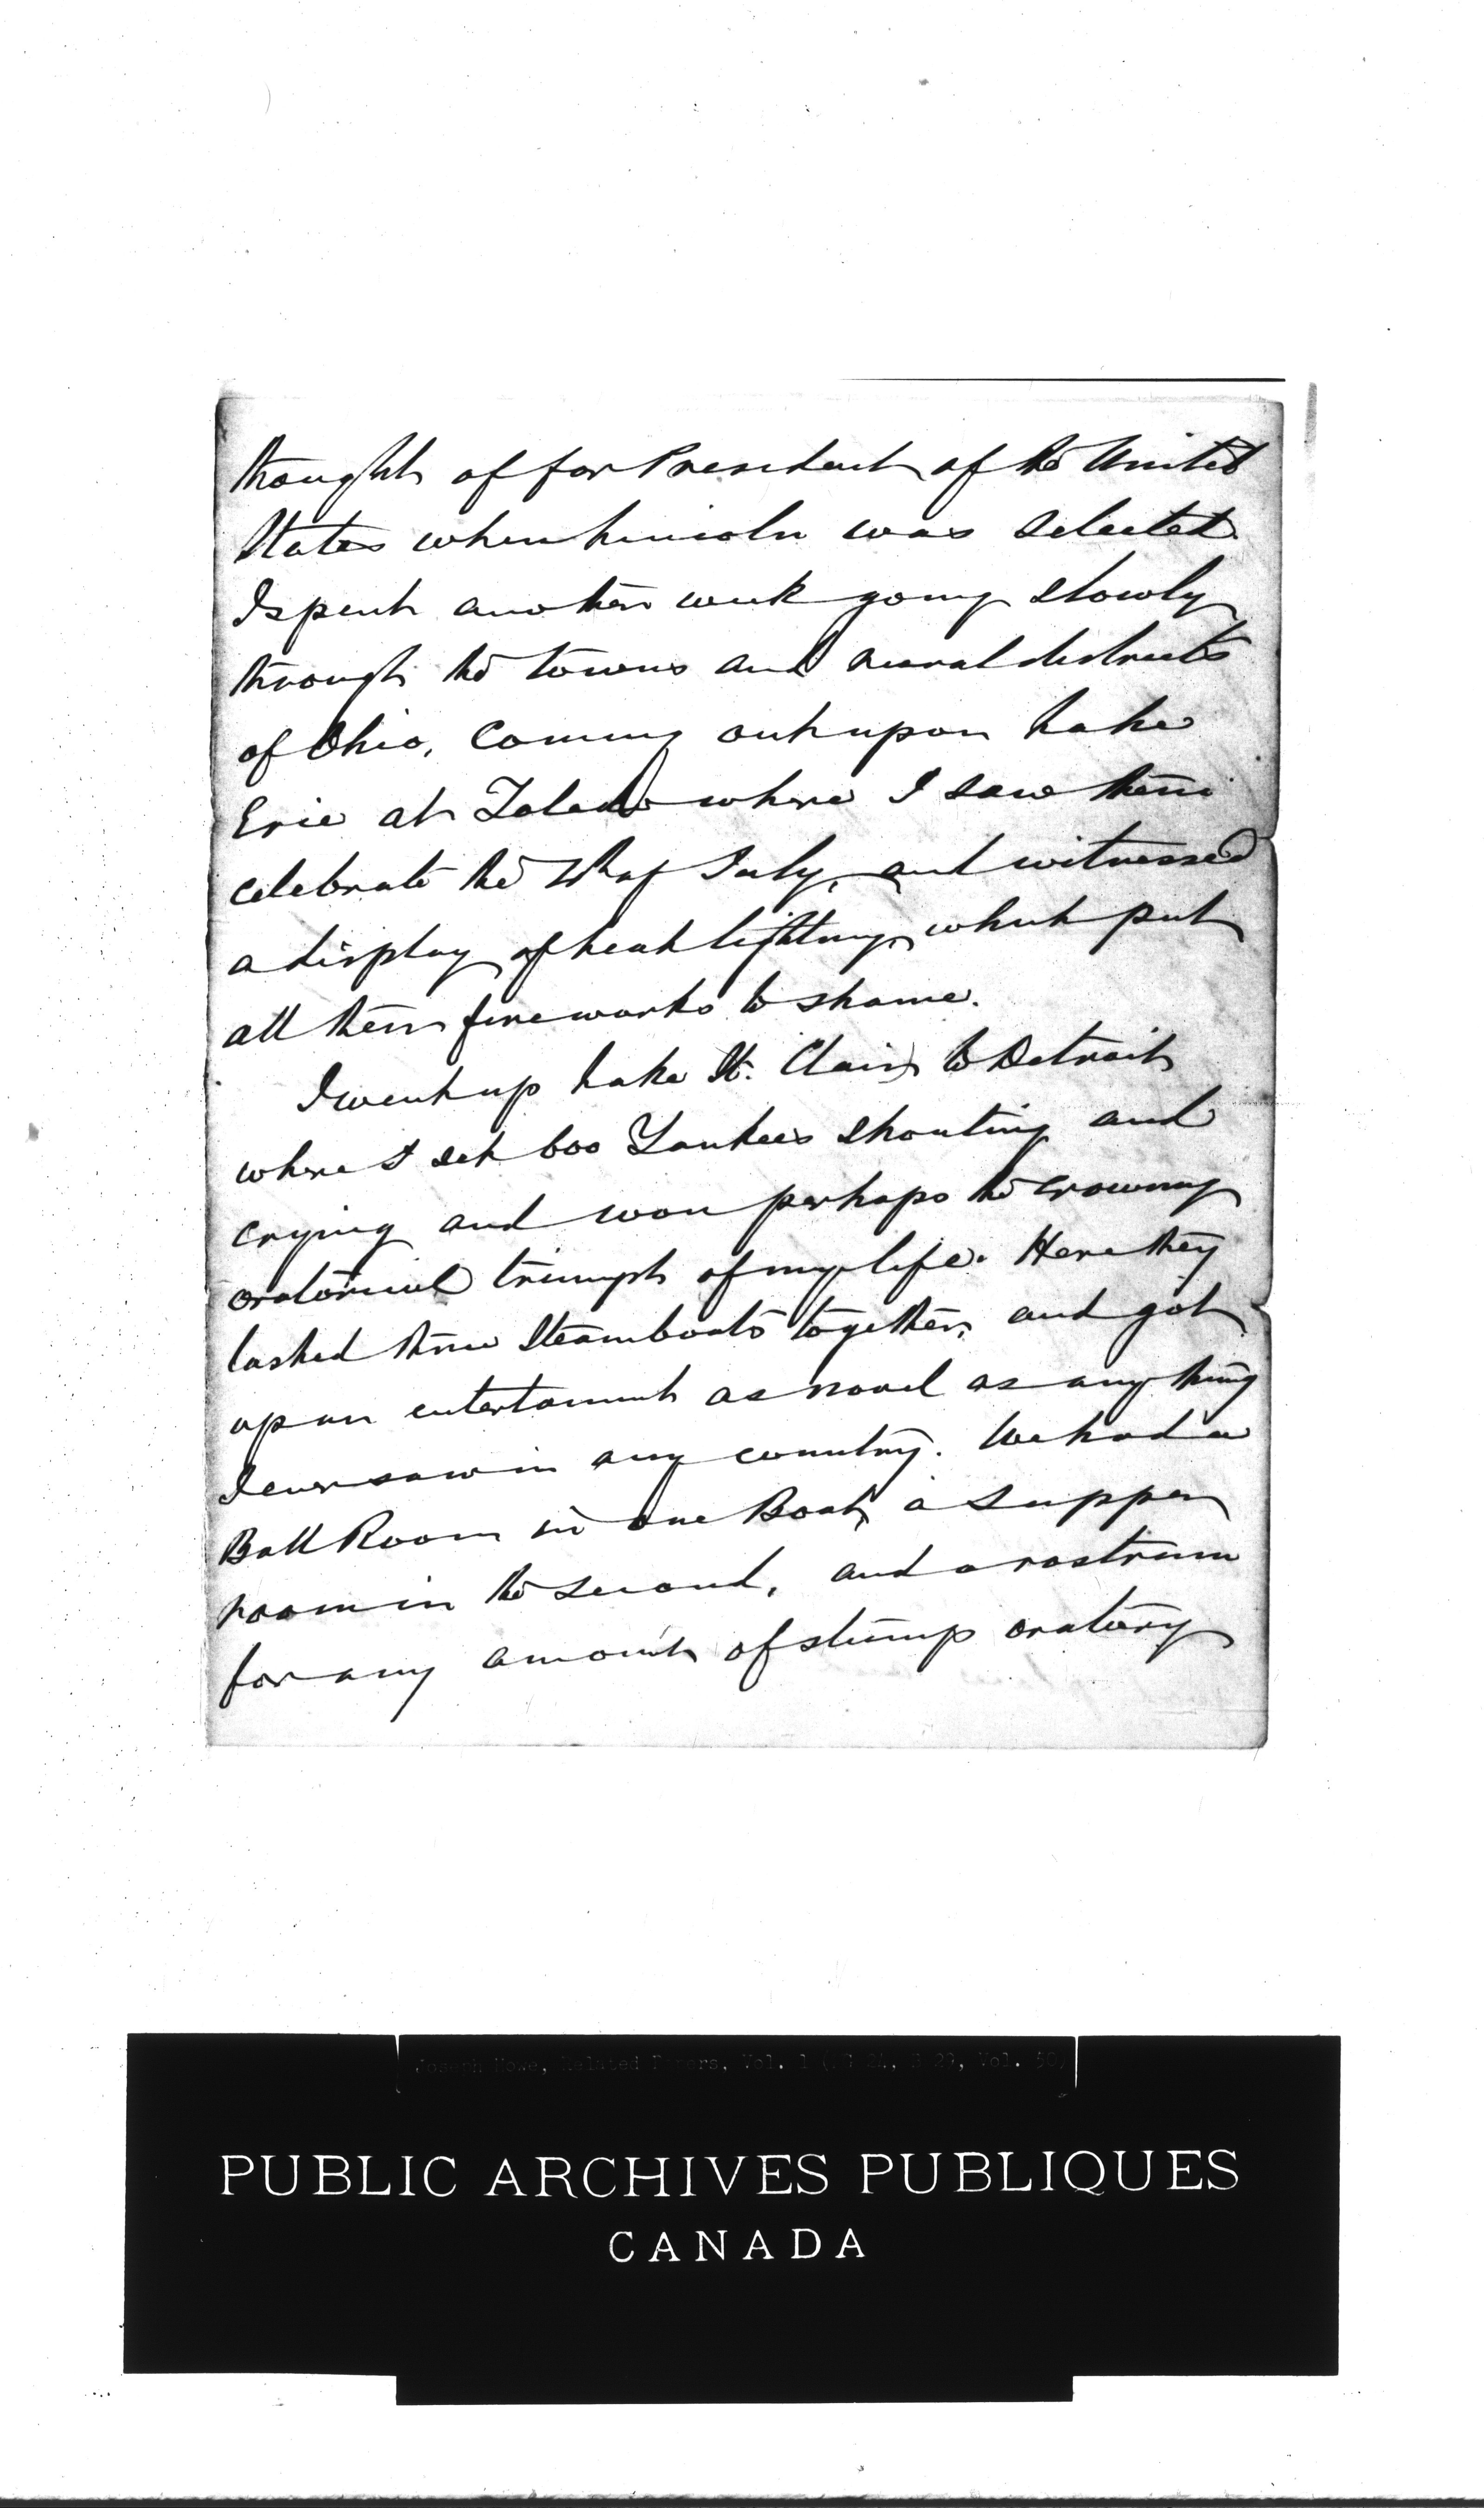 thought of for President of the United
States when Lincoln was selected.
I spent another week going slowly
through the towns and rural districts
of Ohio, coming out upon Lake
Erie at Toledo where I saw them
celebrate the 4th of July, and witnessed
a display of heat lightning, which put
all their fireworks to shame.
I went up Lake St. Clair to Detroit
where I set 600 Yankees shouting and
crying and won perhaps the crowning
oratorical triumph of my life. Here they
lashed three Steamboats together, and got
up an entertainment as novel as any thing
I ever saw in any country. We had a
Ball Room in one Boat, a supper
room in the second, and a rostrum
for any amount of stump oratory
Joseph Howe, Related Papers, Vol. 1 (MG 24, B 29, Vol. 50)
PUBLIC ARCHIVES PUBLIQUES
CANADA